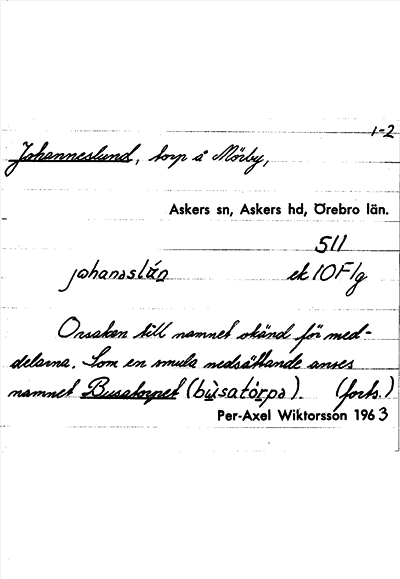 1-2
Johanneslund, torp å Mörby,
Askers sn, Askers hd, Örebro län.
511
johanəslán ek 10F1g
Orsaken till namnet okänd för med-
delarna. Som en smula nedsättande anses
namnet Busatorpet (bùsatòrpə). (forts.)
Per-Axel Wiktorsson 1963